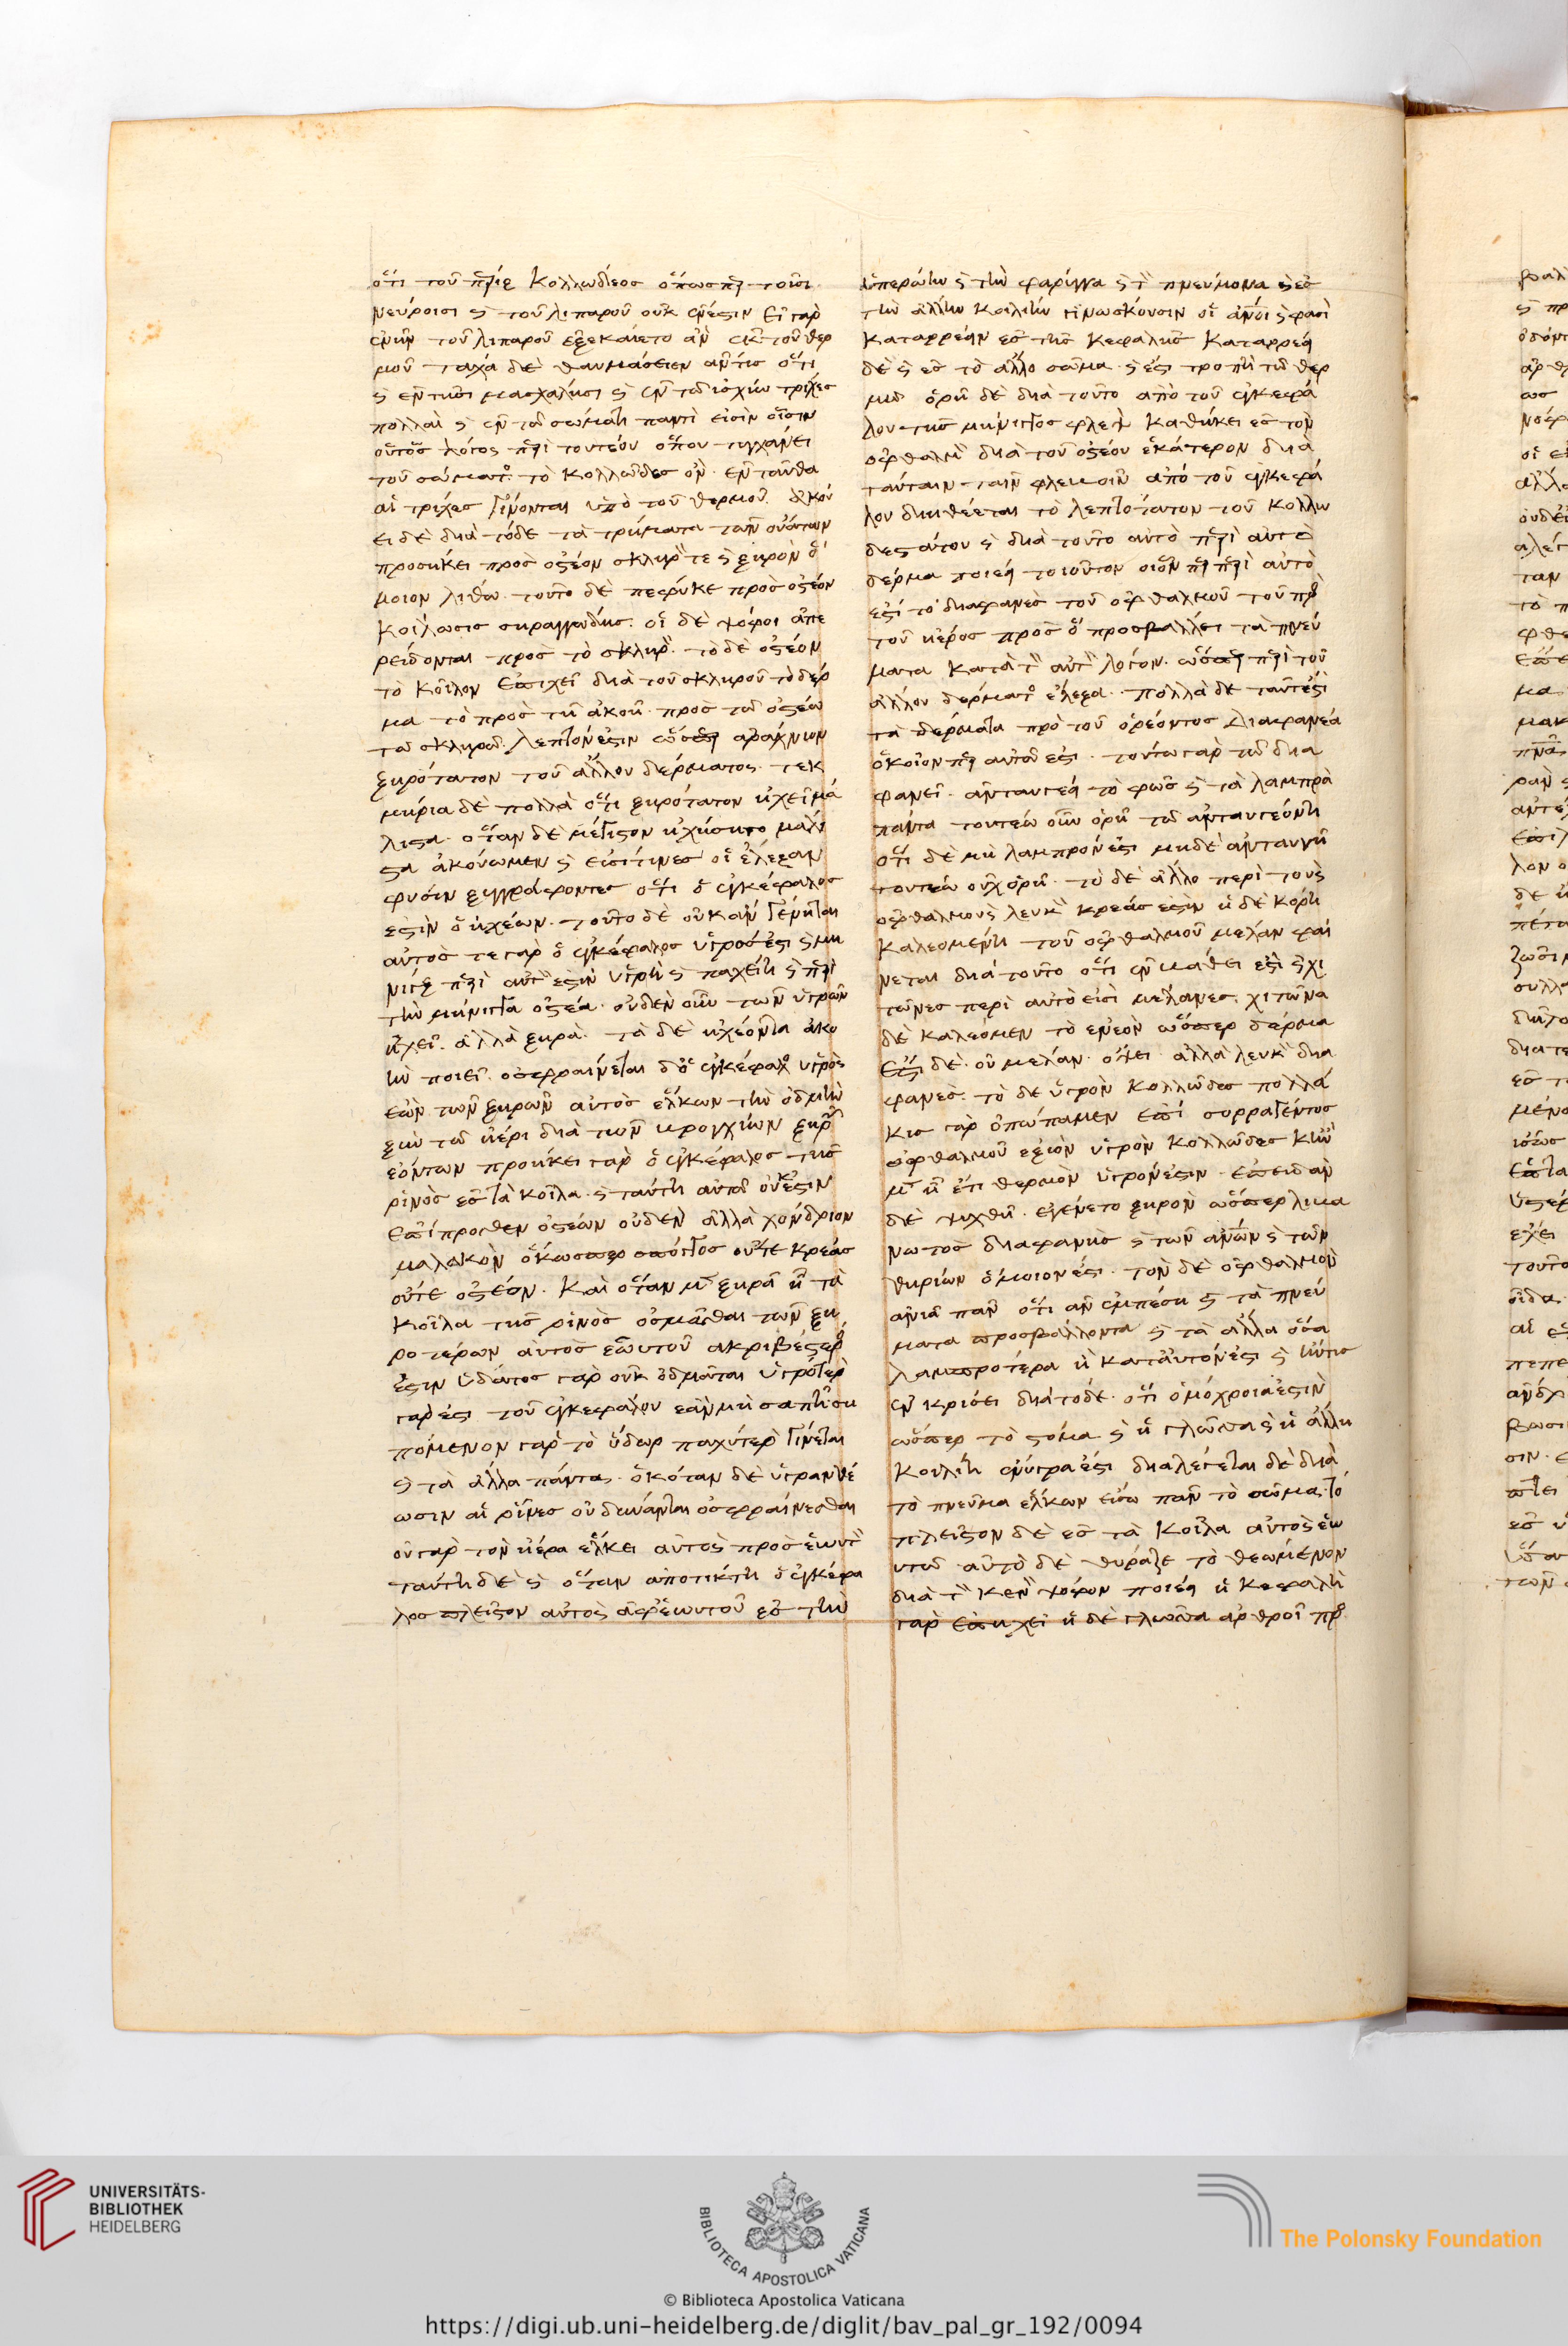 ὅτι τοῦ περὶ κολλώδεος ὅπως περὶ τοῖσι
νεύροισι καὶ τοῦ λιπαροῦ οὐκ ἔνεστιν εἰ γὰρ
ἐνῆν τοῦ λιπαροῦ ἐξεκαίετο ἂν ἐκ τοῦ θερ
μοῦ τάχα δὲ θαυμάσειεν ἄν τις ὅτι
καὶ ἐν τῇσι μασχάλῃσι καὶ ἐν τῷ ἰσχίῳ τρίχες
πολλαὶ καὶ ἐν τῷ σώματι παντὶ εἰσὶν οἷσιν
οὗτος λόγος περὶ τουτέου ὅπου τυγχάνει
τοῦ σώματος τὸ κολλῶδες ὂν ἐνταῦθα
αἱ τρίχες γίνονται ὑπὸ τοῦ θερμοῦ. ἀκού
ει δὲ διὰ τόδε τὰ τρήματα τῶν οὐάτων
προσήκει πρὸς ὀστέον σκληρόν τε καὶ ξηρὸν ὅ
μοιον λίθῳ. τοῦτο δὲ πέφυκε πρὸς ὀστέον
κοίλωσις σηραγγώδης. οἱ δὲ ψόφοι ἀπε
ρείδονται πρὸς τὸ σκληρόν. τὸ δὲ ὀστέον
τὸ κοῖλον ἐπηχεῖ διὰ τοῦ σκληροῦ τὸ δέρ
μα τὸ πρὸς τῇ ἀκοῇ πρὸς τῷ ὀστέῳ
τῷ σκληρῷ. λεπτόν ἐστιν ὥσπερ ἀράχνιον
ξηρότατον τοῦ ἄλλου δέρματος. τεκ
μήρια δὲ πολλὰ ὅτι ξηρότατον ἠχεῖ μά
λιστα. ὅταν δὲ μέγιστον ἠχήσηται μάλι
στα ἀκούωμεν καὶ εἰσί τινες οἳ ἔλεξαν
φύσιν ξυγγράφοντες ὅτι ὁ ἐγκέφαλος
ἐστὶν ὁ ἠχέων. τοῦτο δὲ οὐκ ἂν γένηται
αὐτός τε γὰρ ὁ ἐγκέφαλος ὑγρός ἐστι καὶ μῆ
νιγξ περὶ αὐτόν ἐστιν ὑγρὴ καὶ παχείη καὶ περὶ
τὴν μήνιγγα ὀστέα. οὐδὲν οὖν τῶν ὑγρῶν
ἠχεῖ. ἀλλὰ ξηρὰ. τὰ δὲ ἠχέοντα ἀκο
ὴν ποιεῖ. ὀσφραίνεται δὲ ὁ ἐγκέφαλος ὑγρὸς
ἐὼν τῶν ξηρῶν αὐτὸς ἕλκων τὴν ὀδμὴν
ξὺν τῷ ἠέρι διὰ τῶν βρογχίων ξηρῶν
ἐόντων προήκει γὰρ ὁ ἐγκέφαλος τῆς
ῥινὸς ἐς τὰ κοῖλα. καὶ ταύτῃ αὐτῷ οὐκ ἔστιν
ἐπίπροσθεν ὀστέων οὐδὲν ἀλλὰ χόνδριον
μαλακὸν ὅκωσπερ σπόγγος οὔτε κρέας
οὔτε ὀστέον. καὶ ὅταν μὲν ξηρὰ ᾖ τὰ
κοῖλα τῆς ῥινὸς ὀσμᾶσθαι τῶν ξη
ροτέρων αὐτὸς ἑωυτοῦ ἀκριβέστερος
ἐστιν ὕδατος γὰρ οὐκ ὀδμᾶται ὑγρότερον
γάρ ἐστι τοῦ ἐγκεφάλου ἐὰν μὴ σαπῇ ση
πόμενον γὰρ τὸ ὕδωρ παχύτερον γίνεται
καὶ τὰ ἄλλα πάντα. ὁκόταν δὲ ὑγρανθέ
ωσιν αἱ ῥῖνες οὐ δύνανται ὀσφραίνεσθαι
οὐ γὰρ τὸν ἠέρα ἕλκει αὐτὸς πρὸς ἑωυτόν
ταύτῃ δὲ καὶ ὅταν ἀποτήκῃ ὁ ἐγκέφα
λος πλεῖστον αὐτὸς ἀφ' ἑωυτοῦ ἐς τὴν
ὑπερῴην καὶ τὴν φάρυγγα καὶ τὸν πνεύμονα καὶ ἐς
τὴν ἄλλην κοιλίην γινώσκουσιν οἱ ἄνθρωποι καὶ φασὶ
καταρρέειν ἐς τῆς κεφαλῆς καταρρέει
δὲ καὶ ἐς τὸ ἄλλο σῶμα. καὶ ἔστι τροπὴ τῷ θερ
μῷ ὁρῇ δὲ διὰ τοῦτο ἀπὸ τοῦ ἐγκεφά
λου τῆς μήνιγγος φλὲψ καθήκει ἐς τὸν
ὀφθαλμὸν διὰ τοῦ ὀστέου ἑκάτερον διὰ
ταύταιν ταῖν φλεβοῖν ἀπὸ τοῦ ἐγκεφά
λου διηθέεται τὸ λεπτότατον τοῦ κολλω
δεστάτου καὶ διὰ τοῦτο αὐτὸ περὶ αὐτὸ
δέρμα ποιέει τοιοῦτον οἷόν περ περὶ αὐτὸ
ἐστί τὸ διαφανὲς τοῦ ὀφθαλμοῦ τοῦ πρὸς
τοῦ ἠέρος πρὸς ὃ προσβάλλει τὰ πνεύ
ματα κατὰ τὸν αὐτὸν λόγον. ὥσπερ περὶ τοῦ
ἄλλου δέρματος ἔλεξα. πολλὰ δὲ ταῦτ' ἐστὶ
τὰ δέρματα πρὸ τοῦ ὁρέοντος διαφανέα
ὁκοῖόν περ αὐτό ἐστι. τούτῳ γὰρ τῷ δια
φανεῖ. ἀνταυγέει τὸ φῶς καὶ τὰ λαμπρὰ
πάντα τουτέῳ οὖν ὁρῇ τῷ ἀνταυγέοντι
ὅτι δὲ μὴ λαμπρόν ἐστι μηδὲ ἀνταυγῇ
τουτέῳ οὐχ ὁρῇ. τὸ δὲ ἄλλο περὶ τοὺς
ὀφθαλμοὺς λευκὸν κρέας ἐστιν ἡ δὲ κόρη
καλεομένη τοῦ ὀφθαλμοῦ μέλαν φαί
νεται διὰ τοῦτο ὅτι ἐν βάθει ἐστὶ καὶ χι
τῶνες περὶ αὐτὸ εἰσὶ μέλανες. χιτῶνα
δὲ καλέομεν τὸ ἐνεὸν ὥσπερ δέρμα
ἔστι δὲ οὐ μέλαν. ὄψει ἀλλὰ λευκὸν δια
φανές. τὸ δὲ ὑγρὸν κολλῶδες πολλά
κις γὰρ ὀπώπαμεν ἐπὶ συρραγέντος
ὀφθαλμοῦ ἐξιὸν ὑγρὸν κολλῶδες κἢν
μὲν ᾖ ἔτι θερμὸν ὑγρόν ἐστιν. ἐπειδὰν
δὲ ψυχθῇ. ἐγένετο ξηρὸν ὥσπερ λιβα
νωτὸς διαφανὴς καὶ τῶν ἀνθρώπων καὶ τῶν
θηρίων ὅμοιόν ἐστι. τὸν δὲ ὀφθαλμὸν
ἀνιᾷ πᾶν ὅτι ἂν ἐμπέσῃ καὶ τὰ πνεύ
ματα προσβάλλοντα καὶ τὰ ἄλλα ὅσα
λαμπρότερα ἢ κατ' αὐτόν ἐστι καὶ ἥντις
ἐν κρίσει διὰ τόδε. ὅτι ὁμόχροιά ἐστιν
ὥσπερ τὸ στόμα καὶ ἡ γλῶσσα καὶ ἡ ἄλλη
κοιλίη ἔνυγρά ἐστι διαλέγεται δὲ διὰ
τὸ πνεῦμα ἕλκων εἴσω πᾶν τὸ σῶμα τὸ
πλεῖστον δὲ ἐς τὰ κοῖλα αὐτὸς ἑω
υτῷ αὐτὸ δὲ θύραζε τὸ θεώμενον
διὰ τὸν κενὸν ψόφον ποιέει ἡ κεφαλὴ
γὰρ ἐπηχεῖ ἡ δὲ γλῶσσα ἀρθροῖ προσ
UNIVERSITÄTS-
BIBLIOTHEK
HEIDELBERG
BIBLIOTECA APOSTOLICA VATICANA
The Polonsky Foundation
© Biblioteca Apostolica Vaticana
https://digi.ub.uni-heidelberg.de/diglit/bav_pal_gr_192/0094